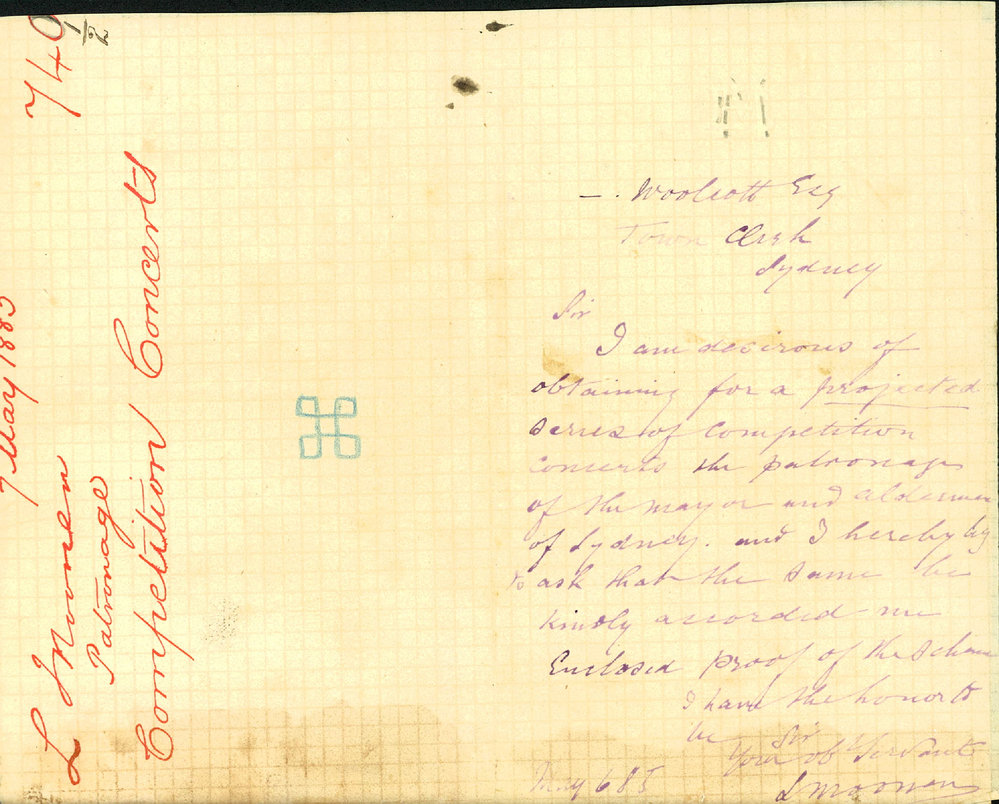 740
1/2
7 May 1885
L Moonen
Patronage
Competition Concerts
—. Woolcott Esq
Town Clerk
Sydney
Sir
I am desirous of
obtaining for a projected
series of competition
concerts the patronage
of the mayor and aldermen
of Sydney. and I hereby beg
to ask that the same be
kindly accorded me
Enclosed proof of the scheme
I have the honor to
be Sir
Your obt Servant
L Moonen
May 6 85